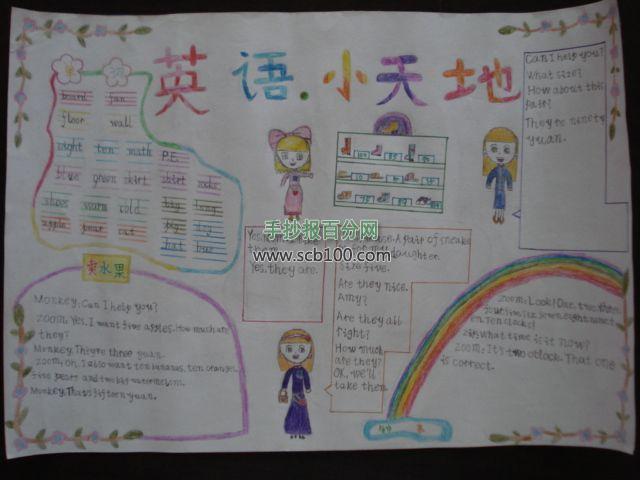 英语.小天地
单词
board fan
floor wall
eight ten math P.E.
blue green skirt shirt socks
shoes warm cold big long
apple pear cat big
hat bus
Can I help you?
What size?
How about this
pair?
They're ninety
yuan.
手抄报百分网
www.scb100.com
Yes, they are.
A pair of sneakers
for my daughter.
size five.
Are they nice,
Amy?
Are they all
right?
How much
are they?
OK, we'll
take them.
卖水果
Monkey: Can I help you?
ZOOM: Yes. I want five apples. How much are
they?
Monkey: They're three yuan.
ZOOM: Oh, I also want ten bananas, ten oranges,
five pears and two big watermelons.
Monkey: That's fifteen yuan.
Zoom: Look! One, two, three,
four, five, six, seven, eight, nine,
ten. Ten o'clock!
Zip: What time is it now?
Zoom: It's two o'clock. That one
is correct.